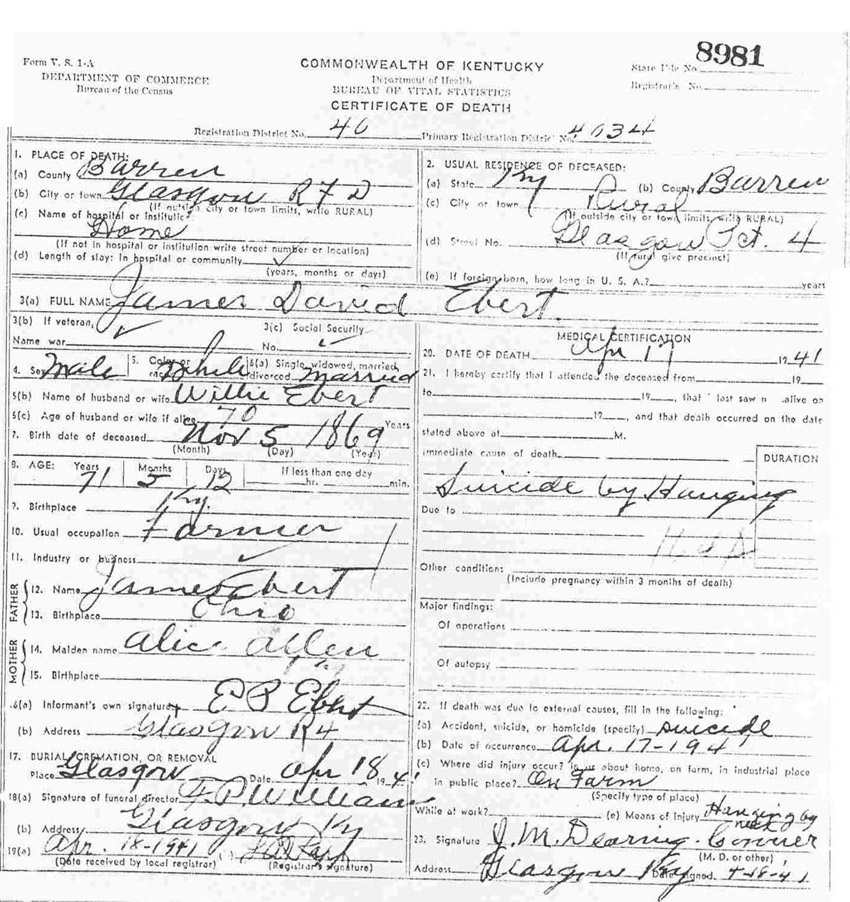 8981
Form V. S. 1-A
DEPARTMENT OF COMMERCE
Bureau of the Census
COMMONWEALTH OF KENTUCKY
Department of Health
BUREAU OF VITAL STATISTICS
CERTIFICATE OF DEATH
State File No.
Registrar's No.
Registration District No. 40 Primary Registration District No. 4034
1. PLACE OF DEATH:
(a) County Barren
(b) City or town Glasgow RFD
(If outside city or town limits, write RURAL)
(c) Name of hospital or institution:
Home
(If not in hospital or institution write street number or location)
(d) Length of stay: In hospital or community ✓
(years, months or days)
2. USUAL RESIDENCE OF DECEASED:
(a) State Ky (b) County Barren
(c) City or town Rural
(If outside city or town limits, write RURAL)
(d) Street No. Glasgow Pct. 4
(If rural give precinct)
(e) If foreign born, how long in U. S. A.? years
3(a) FULL NAME James David Ebert.
3(b) If veteran, ✓ 3(c) Social Security
Name war No. ✓
4. Sex Male 5. Color or race White 6(a) Single, widowed, married, divorced Married
6(b) Name of husband or wife Willie Ebert
6(c) Age of husband or wife if alive 70 Years
7. Birth date of deceased Nov 5 1869
(Month) (Day) (Year)
8. AGE: Years Months Days If less than one day
71 5 12 hr. min.
9. Birthplace Ky.
10. Usual occupation Farmer
11. Industry or business ✓
FATHER
12. Name James Ebert
13. Birthplace Ohio
MOTHER
14. Maiden name Alice Allen
15. Birthplace Ky
16(a) Informant's own signature E P Ebert
(b) Address Glasgow R4
17. BURIAL, CREMATION, OR REMOVAL
Place Glasgow Date Apr 18 1941
18(a) Signature of funeral director
(b) Address Glasgow Ky
19(a) Apr. 18-1941
(Date received by local registrar) (Registrar's signature)
MEDICAL CERTIFICATION
20. DATE OF DEATH Apr 17 1941
21. I hereby certify that I attended the deceased from 19
to 19 , that I last saw h alive on
19 , and that death occurred on the date
stated above at M.
Immediate cause of death DURATION
Suicide by Hanging
Due to
Other condition:
(Include pregnancy within 3 months of death)
Major findings:
Of operations
Of autopsy
22. If death was due to external causes, fill in the following:
(a) Accident, suicide, or homicide (specify) suicide
(b) Date of occurrence Apr. 17-1941
(c) Where did injury occur? in or about home, on farm, in industrial place
in public place? On Farm
(Specify type of place)
While at work? (e) Means of Injury Hanging by neck
23. Signature J. M. Dearing - Coroner
(M. D. or other)
Address Glasgow Ky Date signed 4-18-41